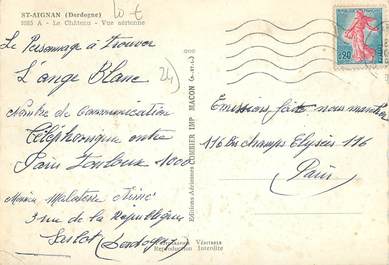 ST-AIGNAN (Dordogne)
2225 A - Le Château - Vue aérienne
10 €
Le Personnage à trouver
L'ange Blanc
24
Nombre de Communication
Téléphonique entre
Paris Toulouse 1000
Malaterre
3 rue de la République
Sarlat (Dordogne)
Editions Aériennes COMBIER IMP MACON (S.-et-L.)
Véritable
Reproduction Interdite
0,20
Emission faite nous
116 bis champs Elysées 116
Paris